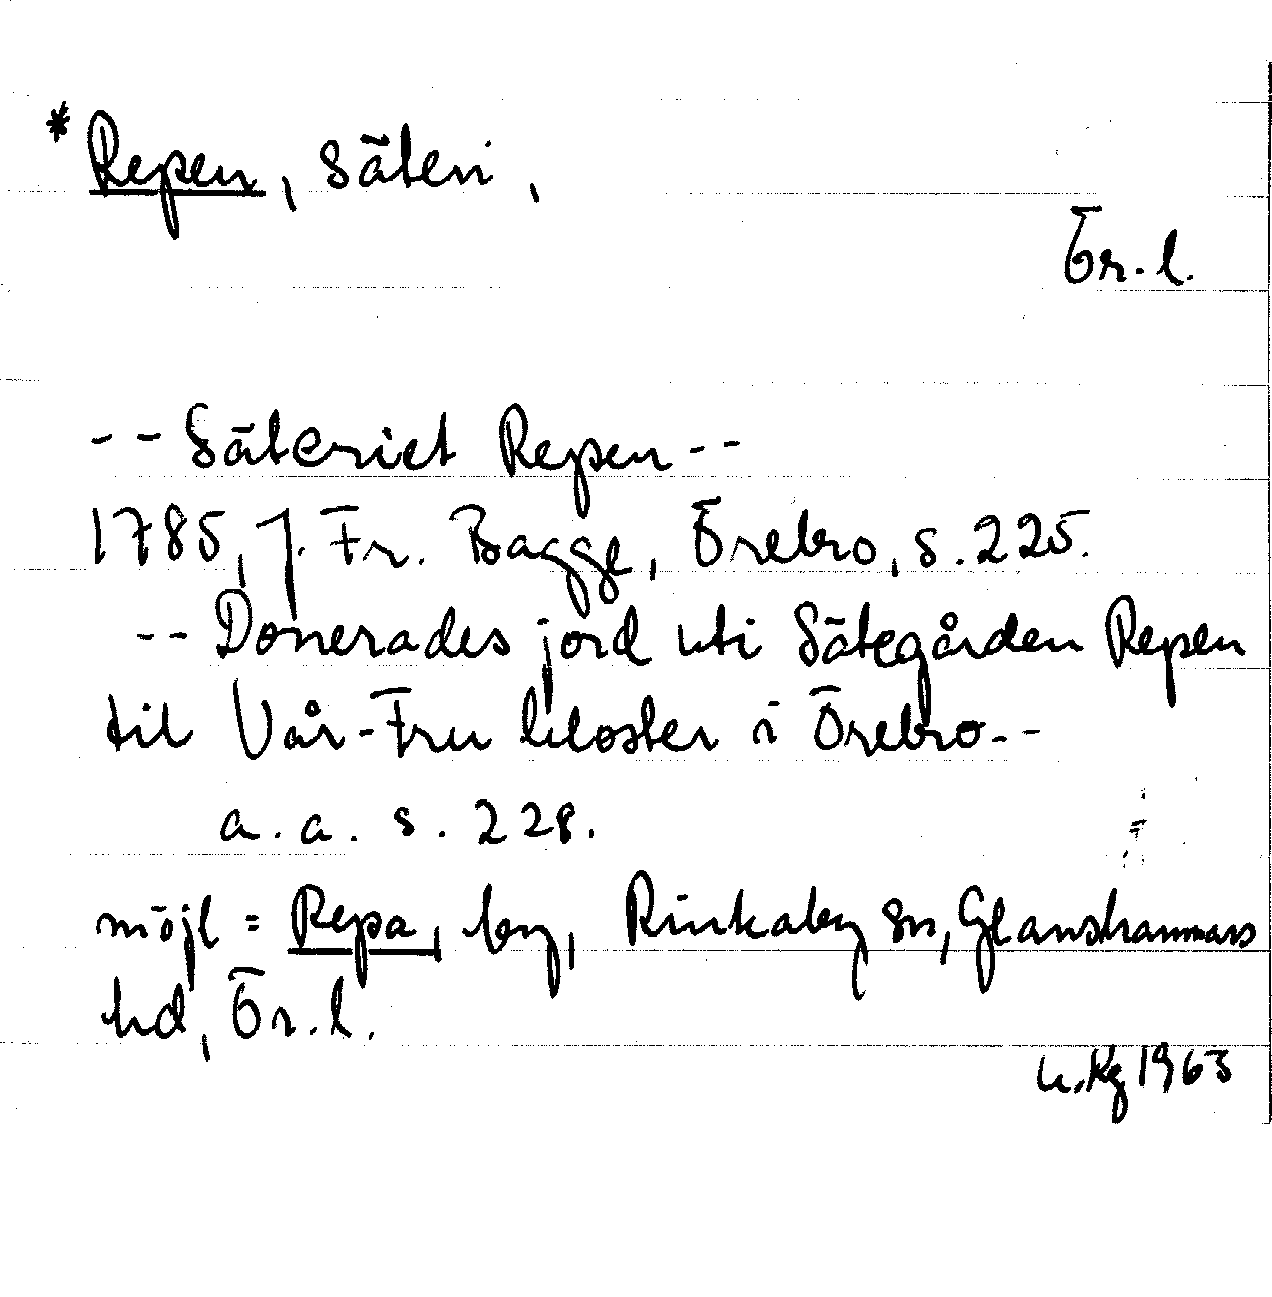 * Repen, säteri,
Ör.l.
-- Säteriet Repen --
1785, J. Fr. Bagge, Örebro, s. 225.
-- Donerades jord uti Sätegården Repen
til Vår-Fru kloster i Örebro--
a.a. s. 228.
möjl = Repa, by, Rinkaby sn, Glanshammars
hd, Ör.l.
Kg 1963